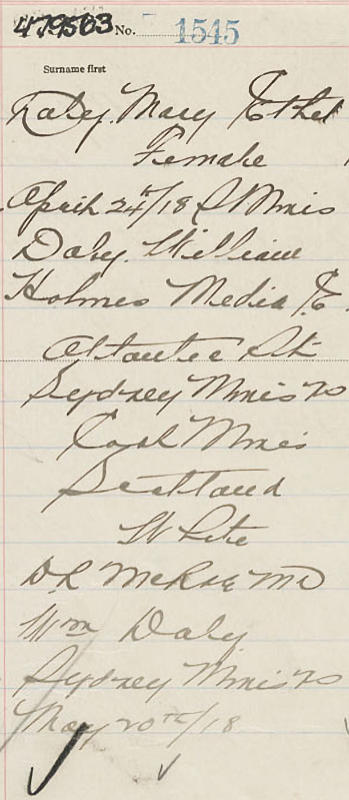 479563 No. 1545
Surname first
Daley. Mary Ethel
Female
April 24th/18 S Mines
Daley. William
Holmes Media E.
Atlantic St
Sydney Mines NS
Coal Miner
Scotland
White
D L McRae MD
Wm Daley
Sydney Mines NS
May 20th/18